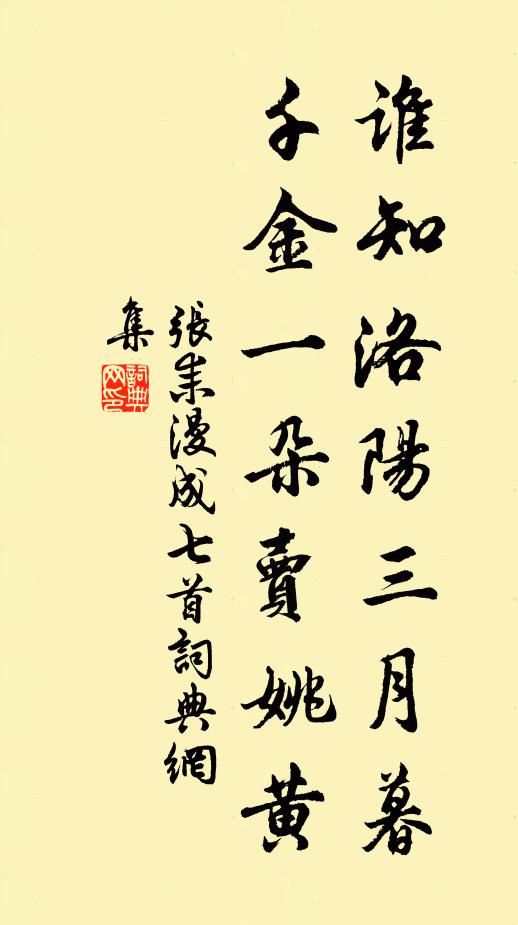 誰知洛陽三月暮
千金一朵賣姚黄
張耒漫成七首詞典網
集
詞典
网印